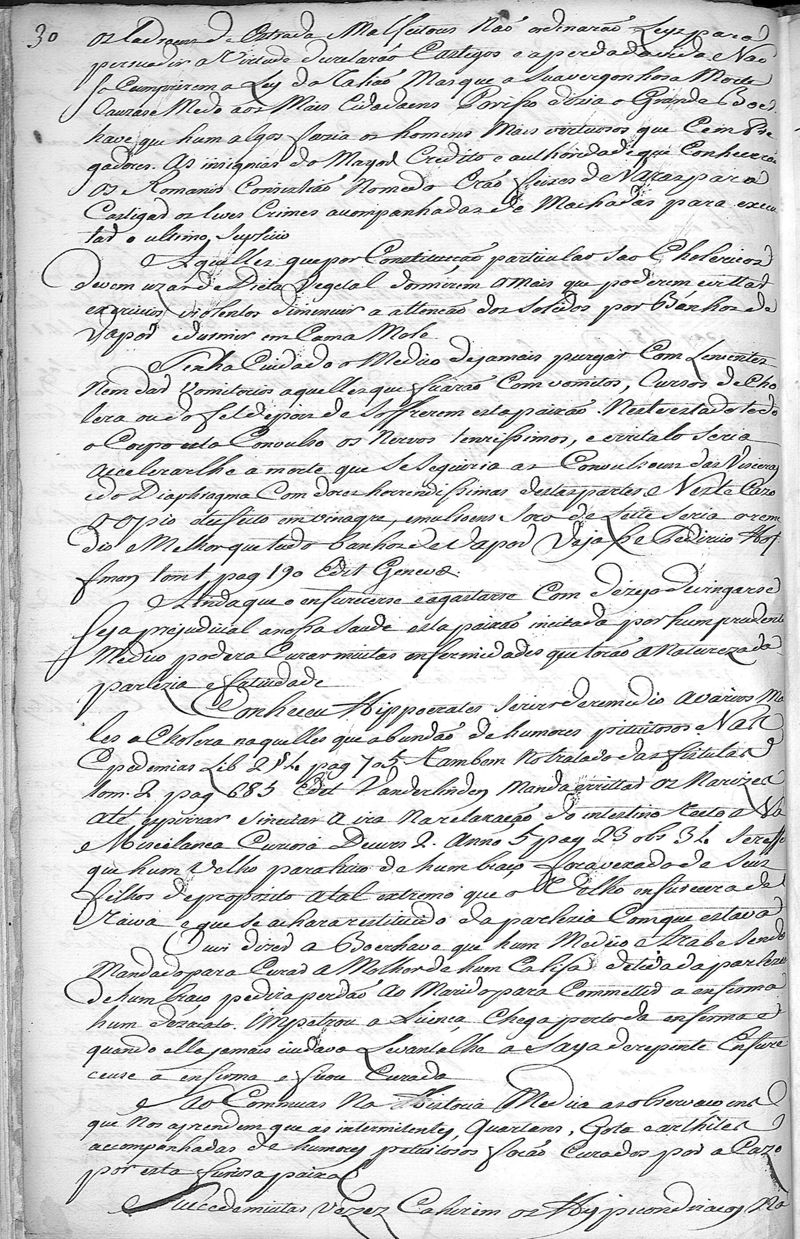 30
os Ladroens de Estrada e Malfeitores Naõ ordinaraõ Leys para
persuadir a Virtude decretaraõ Castigos e a perda da vida Naõ
so Cumprirem a Ley do Taliaõ Mas que a Sua vergonhosa Morte
Cauzase Medo aos Mais Cidadaens Por isso dizia o Grande Boer
have que hum algos fazia os homens Mais virtuosos que Cem Pre
gadores. As insignias do Mayor Credito e authoridade que Conheceraõ
os Romanos Eraõ feixes de Varas para
Castigar os leves Crimes acompanhadas de Machadas para execu
tar o ultimo Suplicio
Aquelles que por Constituiçaõ particular saõ Cholericos
devem uzar de Dieta Vegetal dormirem o Mais que poderem evittar
exercicios violentos diminuir a attençaõ dos Solidos por Banhos de
Vapor e dormir em Cama Mole
Tenha Cuidado o Medico de jamais purgar Com Lenientes
Nem dar Vomitorios aquelles que ficaraõ Com vomitos, Cursos de Cho
lera ou do fel depois de soffrerem esta paixaõ. Neste estado todo
o Corpo esta Convulso os Nervos tenrissimos, e irritalo seria
accelerarlhe a morte que se seguiria as Convulsoens das Visceras
e do Diaphragma Com dores horrendissimas destas partes e Neste Cazo
o opio desfeito em vinagre, emulsoens Soro de Leite seria o reme
dio e Melhor que tudo banhos de Vapor Vejase Federico Hof
fman tom 1, pag 190 Edit Genevæ.
Ainda que o enfurecerse e agastarse Com dezejo de vingarse
seja prejudicial a nossa Saude esta paixaõ incitada por hum prudente
Medico podera Curar muitas enfermidades que tocaõ a Natureza da
parlezia e fatuidade
Conheceu Hippocrates servir de remedio a varios Ma
les a Cholera naquelles que abundaõ de humores pituitosos Nas
Epedemias Lib 2 pag 705 tambem No tratado das fistulas
tom. 2 pag 685 Edit Vanderlinden Manda irrittar os Narizes
até espirrar e incitar a ira Na relaxaçaõ do intestino Recto
e Miscelanea Curiosa Decuris 2. Anno 5 pag 23 obs 34 Se refe
que hum Velho paralitico de hum braço fora vexado de Seus
filhos de proposito a tal extremo que o Velho enfurecera de
raiva e que se achara restituido da parlezia Com que estava
Ouvi dizer a Boerhave que hum Medico Arabe Sendo
Mandado para Curar a Molher de hum Califa da parlezia
de hum braço pedira perdaõ ao Marido para Commetter a enferma
hum dezacato. Impetrou a licença Chega perto da enferma e
quando ella jamais cuidava Levantalhe a Saya de repente Enfure
ceuse a enferma e ficou Curada
e Saõ Communas Na Historia Medica as observaçoens
que Nos aprendem que as intermitentes, Quartens, Gota e arthites
acompanhadas de humores petuitosos foraõ Curados por a Cazo
por esta furiosa paixaõ
Sucede muitas Vezes Cahirem os Hypocondriacos Na